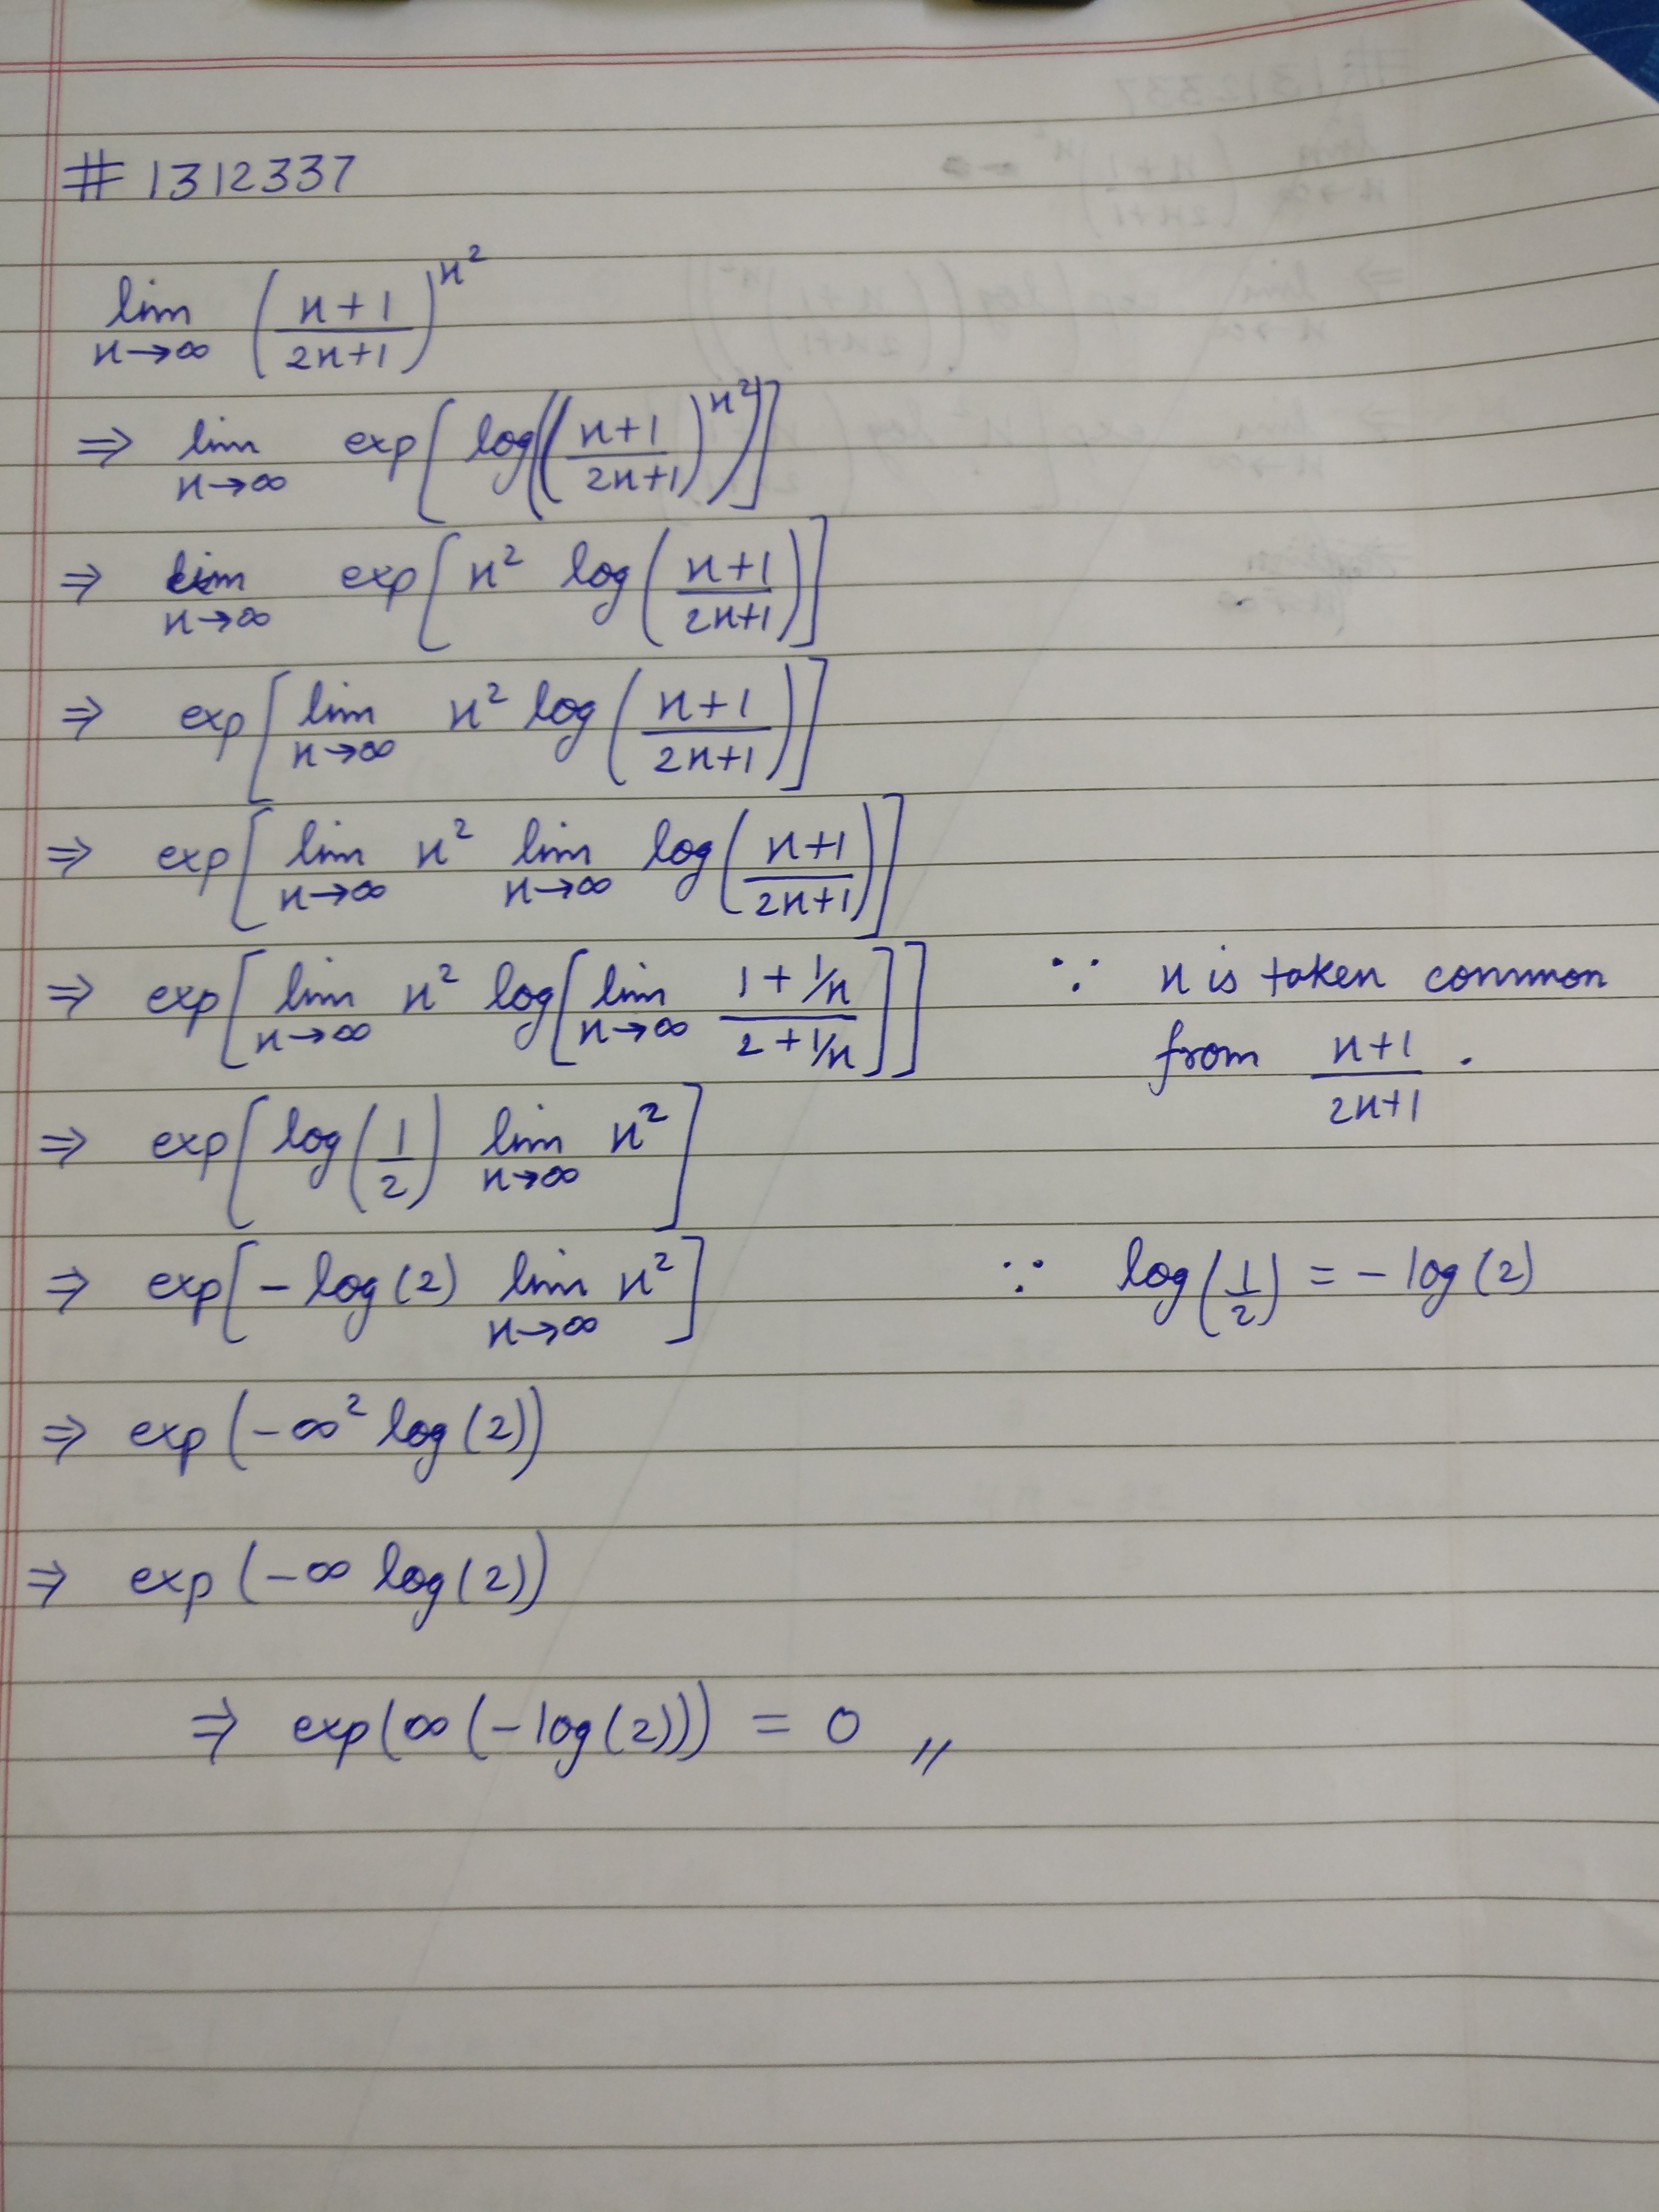 # 1312337
lim x→∞ ((x+1)/(2x+1))^x²
⇒ lim x→∞ exp[log(((x+1)/(2x+1))^x²)]
⇒ lim x→∞ exp[x² log((x+1)/(2x+1))]
⇒ exp[lim x→∞ x² log((x+1)/(2x+1))]
⇒ exp[lim x→∞ x² lim x→∞ log((x+1)/(2x+1))]
⇒ exp[lim x→∞ x² log[lim x→∞ (1+1/x)/(2+1/x)]] ∵ x is taken common
from (x+1)/(2x+1).
⇒ exp[log(1/2) lim x→∞ x²]
⇒ exp[-log(2) lim x→∞ x²] ∵ log(1/2) = -log(2)
⇒ exp(-∞² log(2))
⇒ exp(-∞ log(2))
⇒ exp(∞(-log(2))) = 0 〃